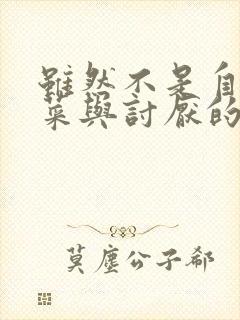 雖然不是自
菜與討厭的
莫塵公子郗